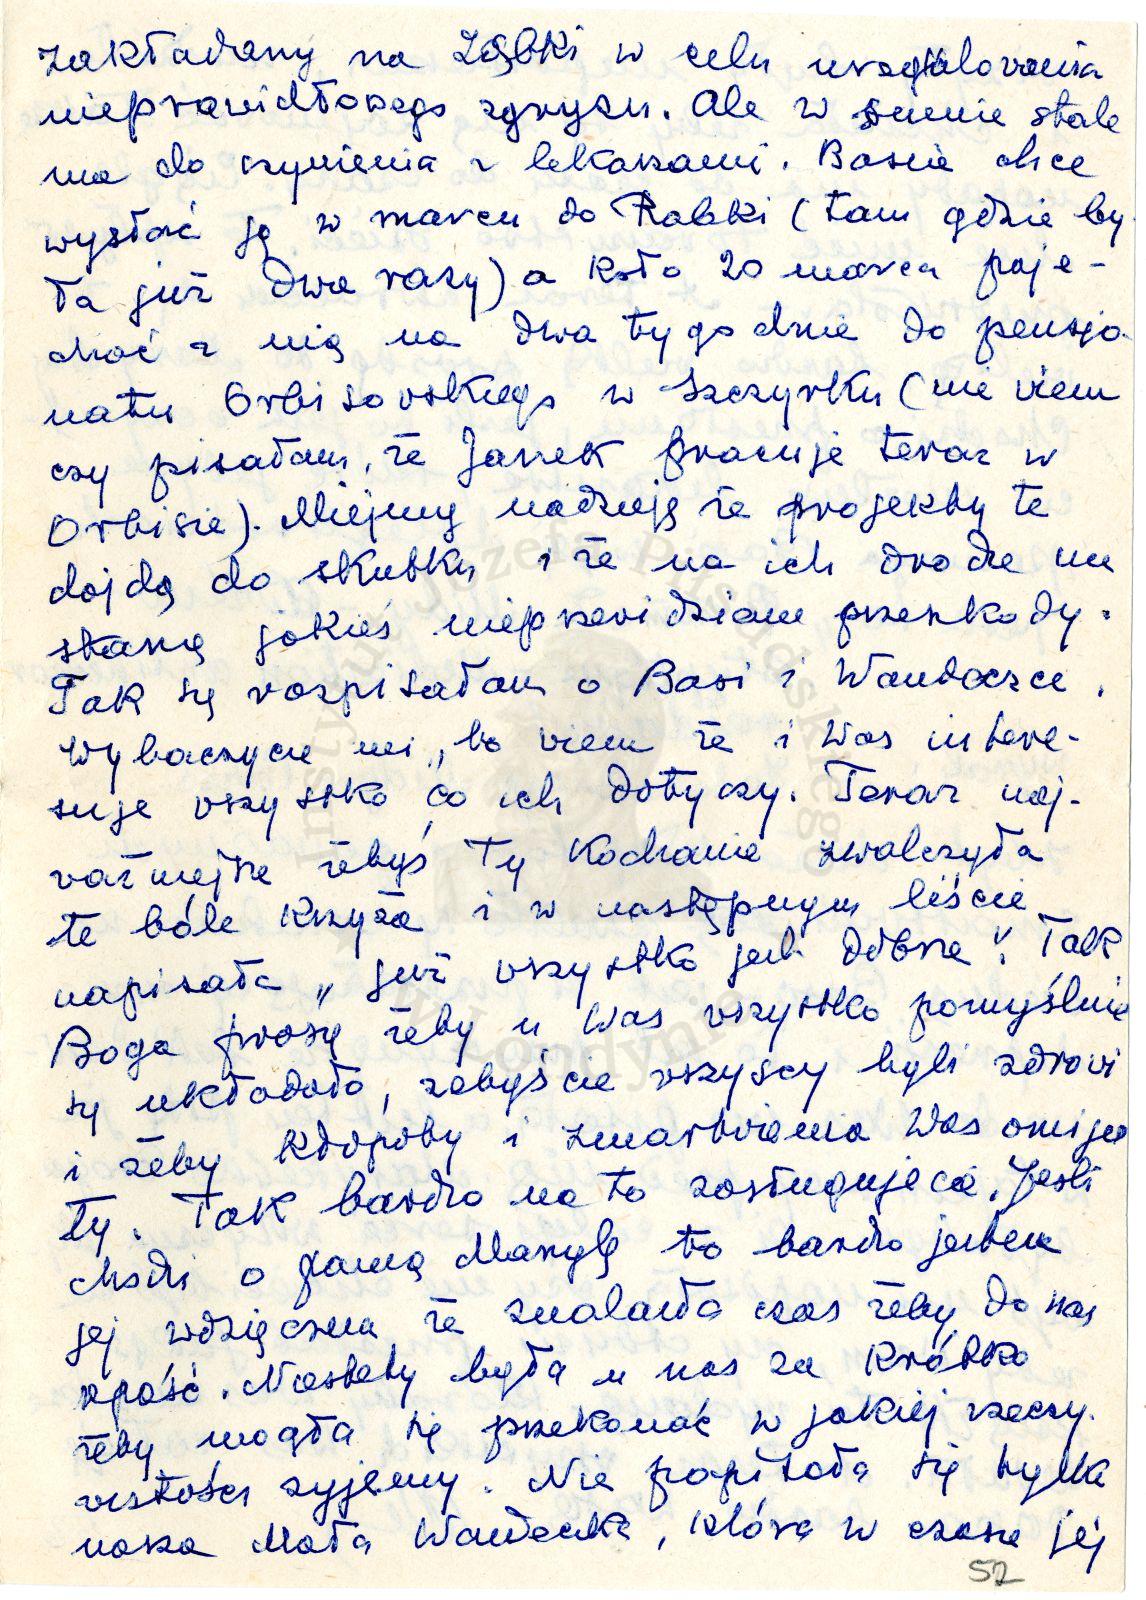 zakładany na ząbki w celu uregulowania
nieprawidłowego zgryzu. Ale w sumie stale
ma do czynienia z lekarzami. Basia chce
wysłać ją w marcu do Rabki (tam gdzie by-
ła już dwa razy) a koło 20 marca poje-
chać z nią na dwa tygodnie do pensjo-
natu Orbisowskiego w Szczyrku (nie wiem
czy pisałam, że Janek pracuje teraz w
Orbisie). Miejmy nadzieję że projekty te
dojdą do skutku i że na ich drodze nie
staną jakieś nieprzewidziane przeszkody.
Tak się rozpisałam o Basi i Wandeczce.
Wybaczycie mi, bo wiem że i Was intere-
suje wszystko co ich dotyczy. Teraz naj-
ważniejsze żebyś Ty Kochanie zwalczyła
te bóle krzyża i w następnym liście
napisała „już wszystko jest dobrze". Tak
Boga proszę żeby u Was wszystko pomyślnie
się układało, żebyście wszyscy byli zdrowi
i żeby kłopoty i zmartwienia Was omija-
ły. Tak bardzo na to zasługujecie. Jeśli
chodzi o panią Marylę to bardzo jestem
jej wdzięczna że znalazła czas żeby do nas
wpaść. Niestety była u nas za krótko
żeby mogła się przekonać w jakiej rzeczy-
wistości żyjemy. Nie popisała się tylko
nasza Mała Wandeczka, która w czasie jej
52
Instytut Józefa Piłsudskiego
w Londynie